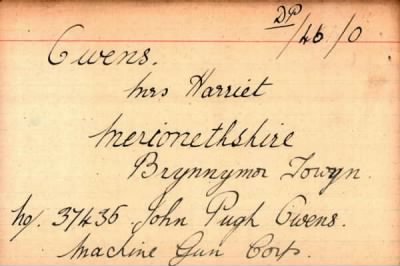 DP/46/0
Owens.
Mrs Harriet
Merionethshire
Brynnymor Towyn.
No. 37436 John Pugh Owens.
Machine Gun Corps.